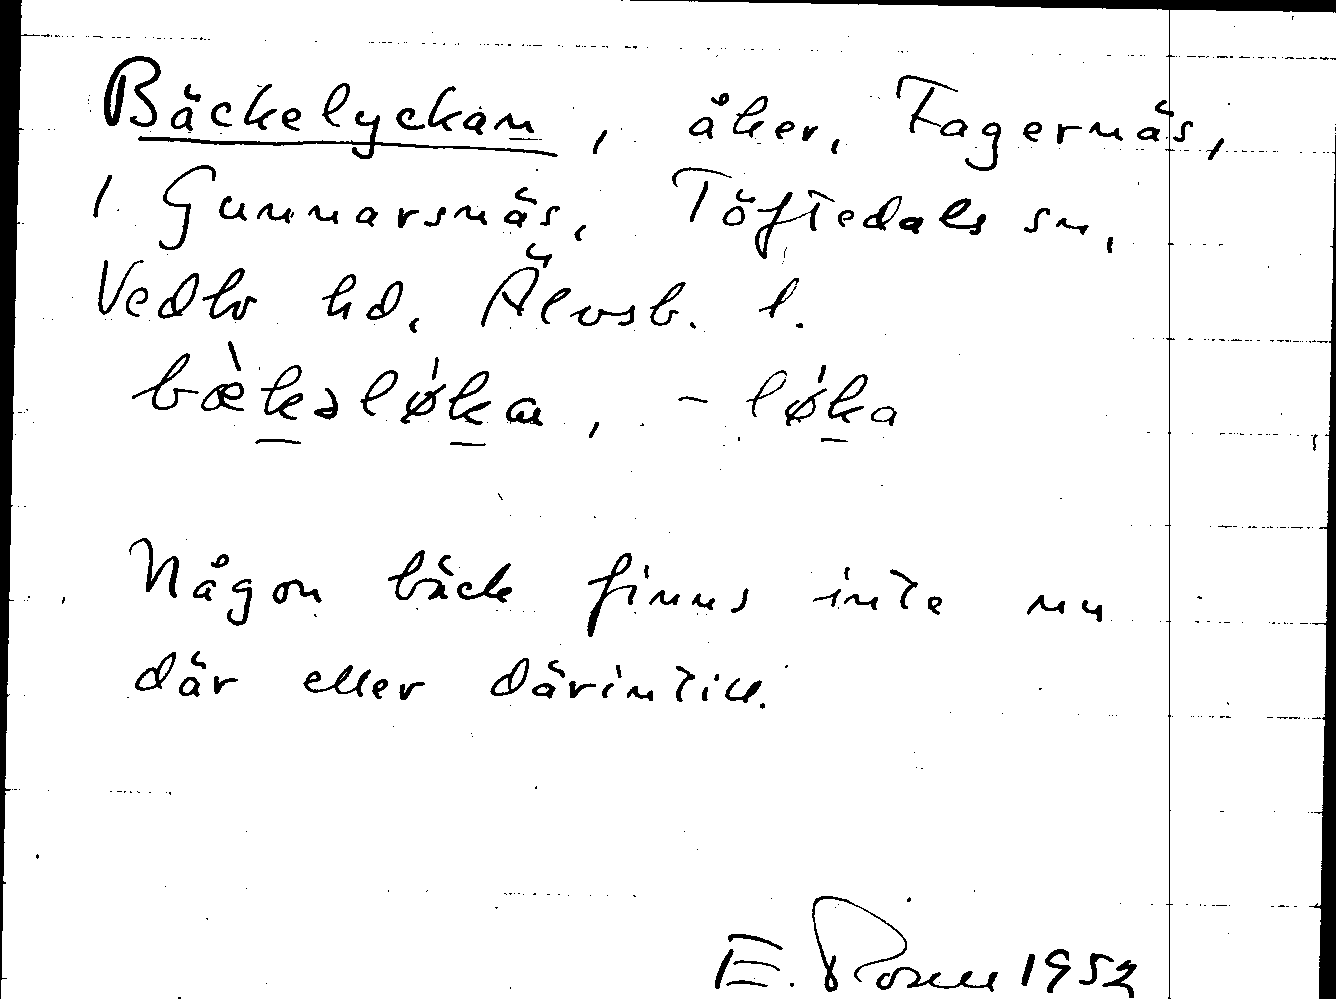 Bäckelyckan, åker, Fagernäs,
1 Gunnarsnäs, Töftedals sn,
Vedbo hd, Älvsb. l.
bæ̀kəlǿka, -lǿka
Någon bäck finns inte nu
där eller därintill.
E. Rosell 1952